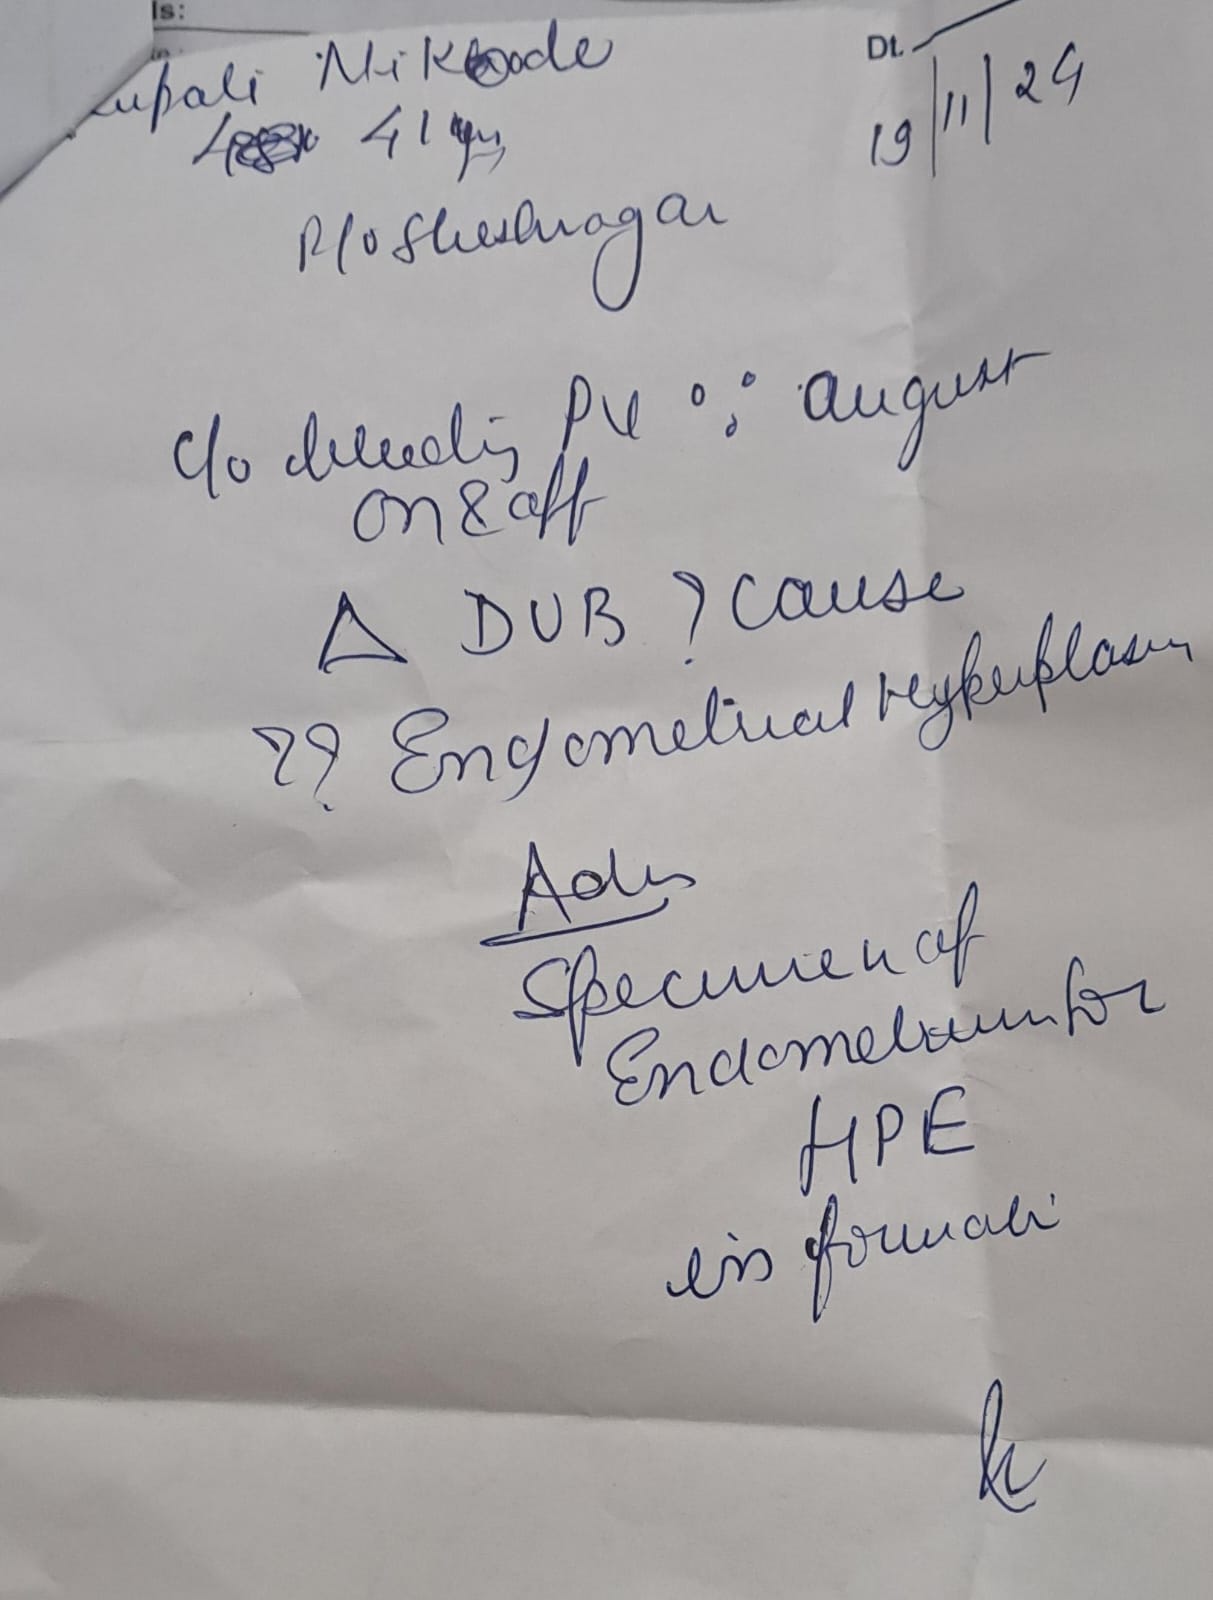 Is:
Dt.
19/11/24
upali Nikode
41 yrs
R/o Sheshnagar
c/o bleeding PV ∵ august
on & off
Δ DUB ? cause
?? Endometrial Hyperplasia
Adv
Specimen of
Endometrium for
HPE
in formalin